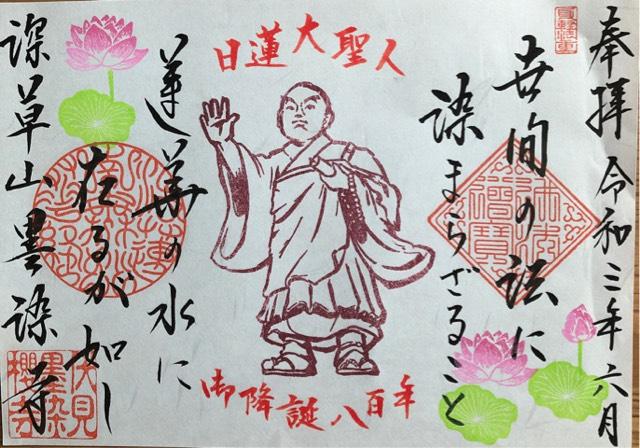 奉拝 令和三年六月
世間の法に
染まらざること
日蓮大聖人
御降誕八百年
蓮華の水に
在るが如し
深草山墨染寺
伏見
墨染
櫻寺